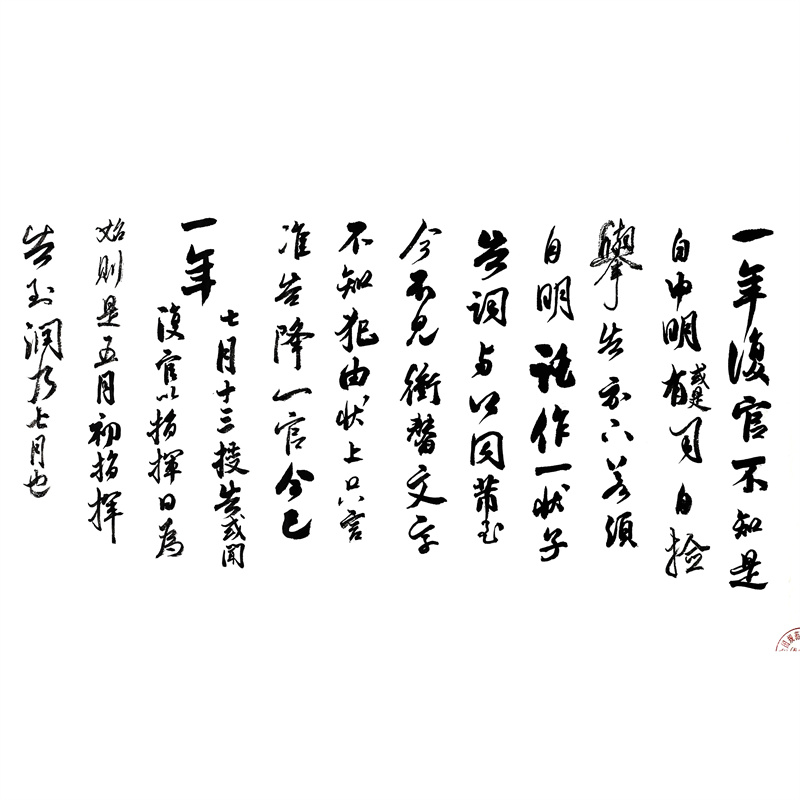 一年復官不知是
自申明有或是司自撿
舉告示下若須
自明託作一狀子
告詞與公同帶至
今不見銜聲文字
不知犯由狀上只言
准告降一官今已
一年七月十三授告或聞
復官以指揮日為
始則是五月初指揮
告到潤乃七月也